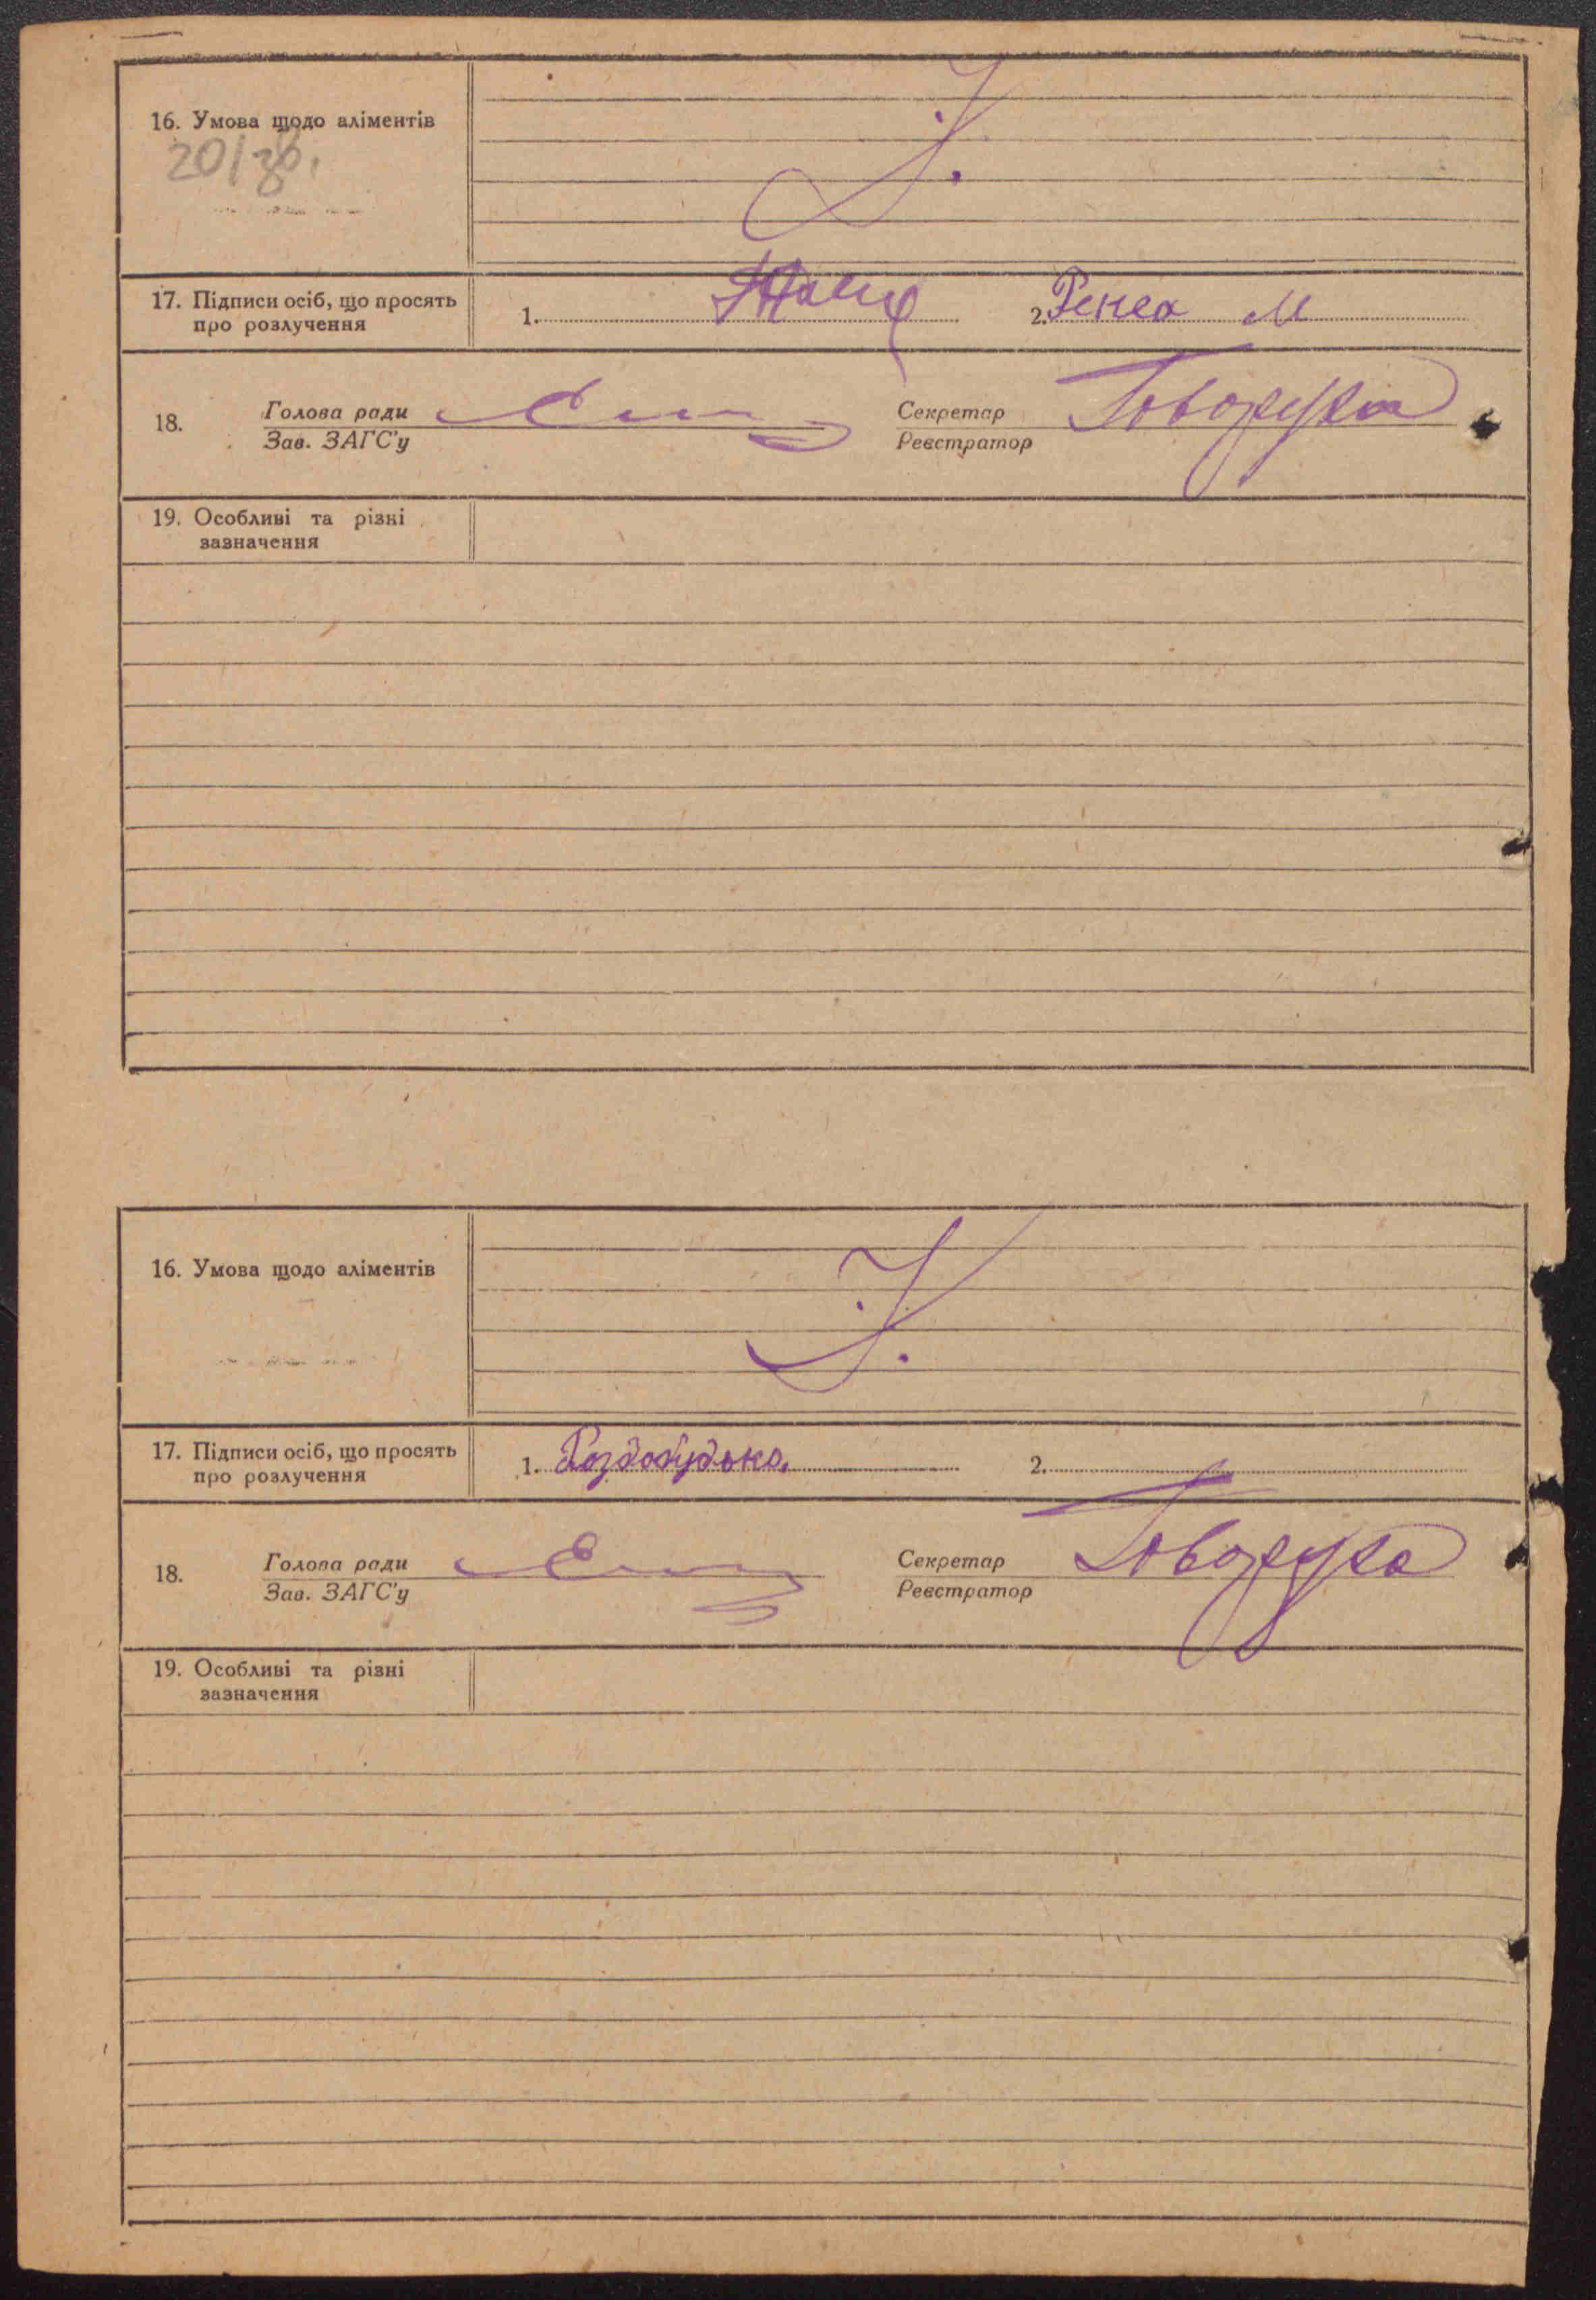 16. Умова щодо аліментів
20/зв.
17. Підписи осіб, що просять
про розлучення
1.
2. Ренса М
18.
Голова ради
Зав. ЗАГС'у
Секретар
Реєстратор
19. Особливі та різні
зазначення
16. Умова щодо аліментів
17. Підписи осіб, що просять
про розлучення
1. Роздобудько.
2.
18.
Голова ради
Зав. ЗАГС'у
Секретар
Реєстратор
19. Особливі та різні
зазначення